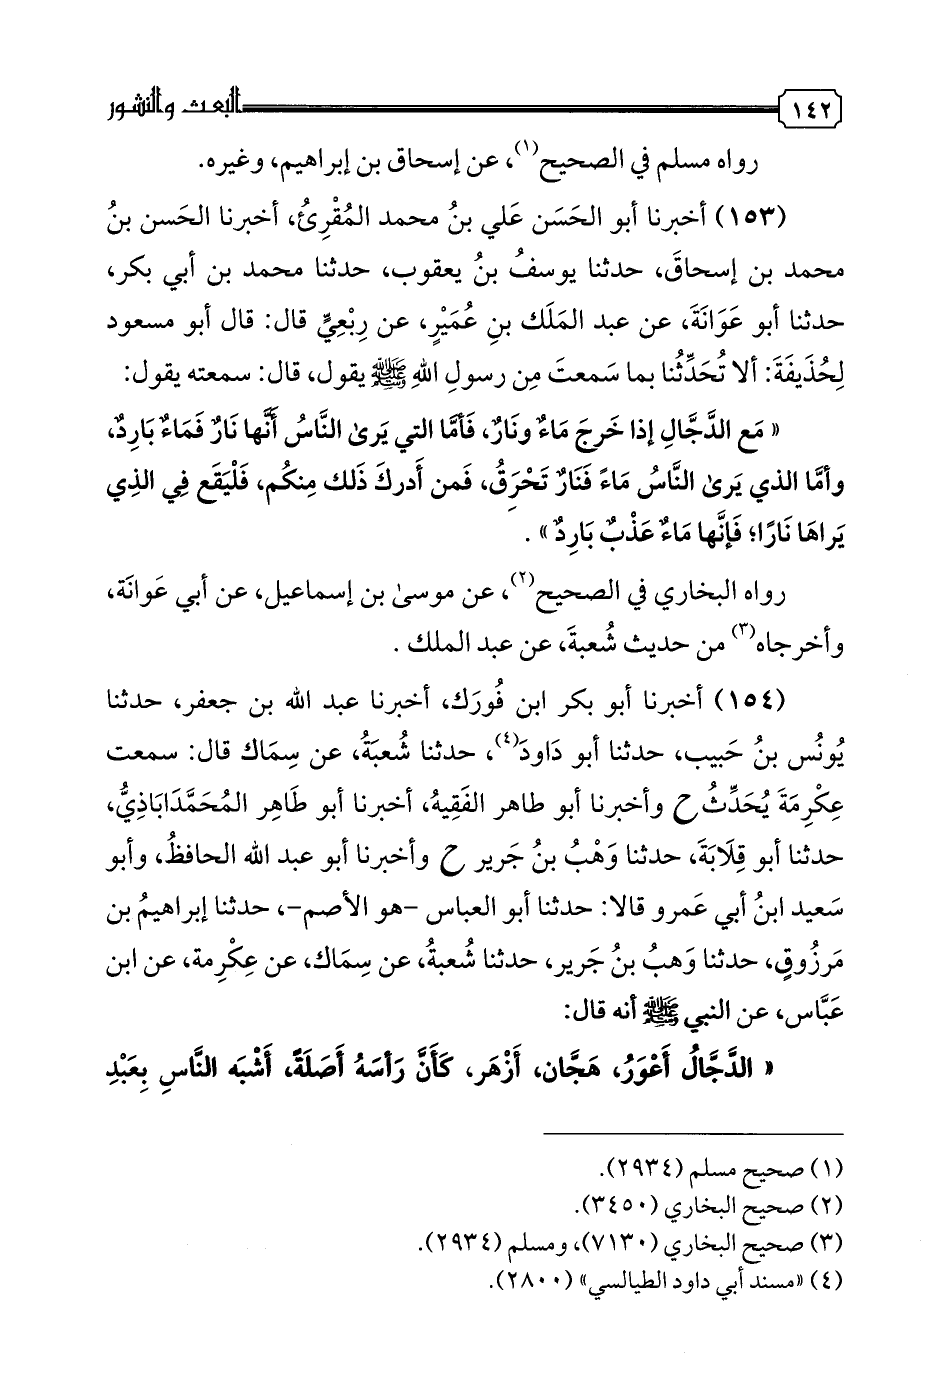 ١٤٢ البعث والنشور
رواه مسلم في الصحيح(١)، عن إسحاق بن إبراهيم، وغيره.
(١٥٣) أخبرنا أبو الحَسَن عَلي بنُ محمد المُقْرِئُ، أخبرنا الحَسن بنُ
محمد بن إسحاقَ، حدثنا يوسفُ بنُ يعقوب، حدثنا محمد بن أبي بكر،
حدثنا أبو عَوَانَةَ، عن عبد المَلَك بنِ عُمَيْرٍ، عن رِبْعِيٍّ قال: قال أبو مسعود
لِحُذَيفَةَ: ألا تُحَدِّثُنا بما سَمعتَ مِن رسولِ اللهِ ﷺ يقول، قال: سمعته يقول:
« مَع الدَّجَّالِ إذا خَرجَ مَاءٌ ونَارٌ، فَأمَّا التي يَرىٰ النَّاسُ أَنَّها نَارٌ فَمَاءٌ بَارِدٌ،
وأمَّا الذي يَرىٰ النَّاسُ مَاءً فَنَارٌ تَحْرِقُ، فَمن أَدركَ ذَلك مِنكُم، فَلْيَقَع فِي الذِي
يَراهَا نَارًا؛ فَإنَّها مَاءٌ عَذْبٌ بَارِدٌ» .
رواه البخاري في الصحيح(٢)، عن موسىٰ بن إسماعيل، عن أبي عَوانَة،
وأخرجاه(٣) من حديث شُعبةَ، عن عبد الملك .
(١٥٤) أخبرنا أبو بكر ابن فُورَك، أخبرنا عبد الله بن جعفر، حدثنا
يُونُس بنُ حَبيب، حدثنا أبو دَاودَ(٤)، حدثنا شُعبَةُ، عن سِمَاك قال: سمعت
عِكْرِمَةَ يُحَدِّثُ ح وأخبرنا أبو طاهر الفَقِيهُ، أخبرنا أبو طَاهِر المُحَمَّدَابَاذِيُّ،
حدثنا أبو قِلَابَةَ، حدثنا وَهْبُ بنُ جَرير ح وأخبرنا أبو عبد الله الحافظُ، وأبو
سَعيد ابنُ أبي عَمرو قالا: حدثنا أبو العباس -هو الأصم-، حدثنا إبراهيمُ بن
مَرزُوقٍ، حدثنا وَهبُ بنُ جَرير، حدثنا شُعبةُ، عن سِمَاك، عن عِكْرِمة، عن ابن
عَبَّاس، عن النبي ﷺ أنه قال:
« الدَّجَّالُ أَعْوَرُ، هَجَّان، أَزْهَر، كَأنَّ رَأسَهُ أَصَلَةً، أَشْبَه النَّاسِ بِعَبْدِ
(١) صحيح مسلم (٢٩٣٤).
(٢) صحيح البخاري (٣٤٥٠).
(٣) صحيح البخاري (٧١٣٠)، ومسلم (٢٩٣٤).
(٤) «مسند أبي داود الطيالسي» (٢٨٠٠).